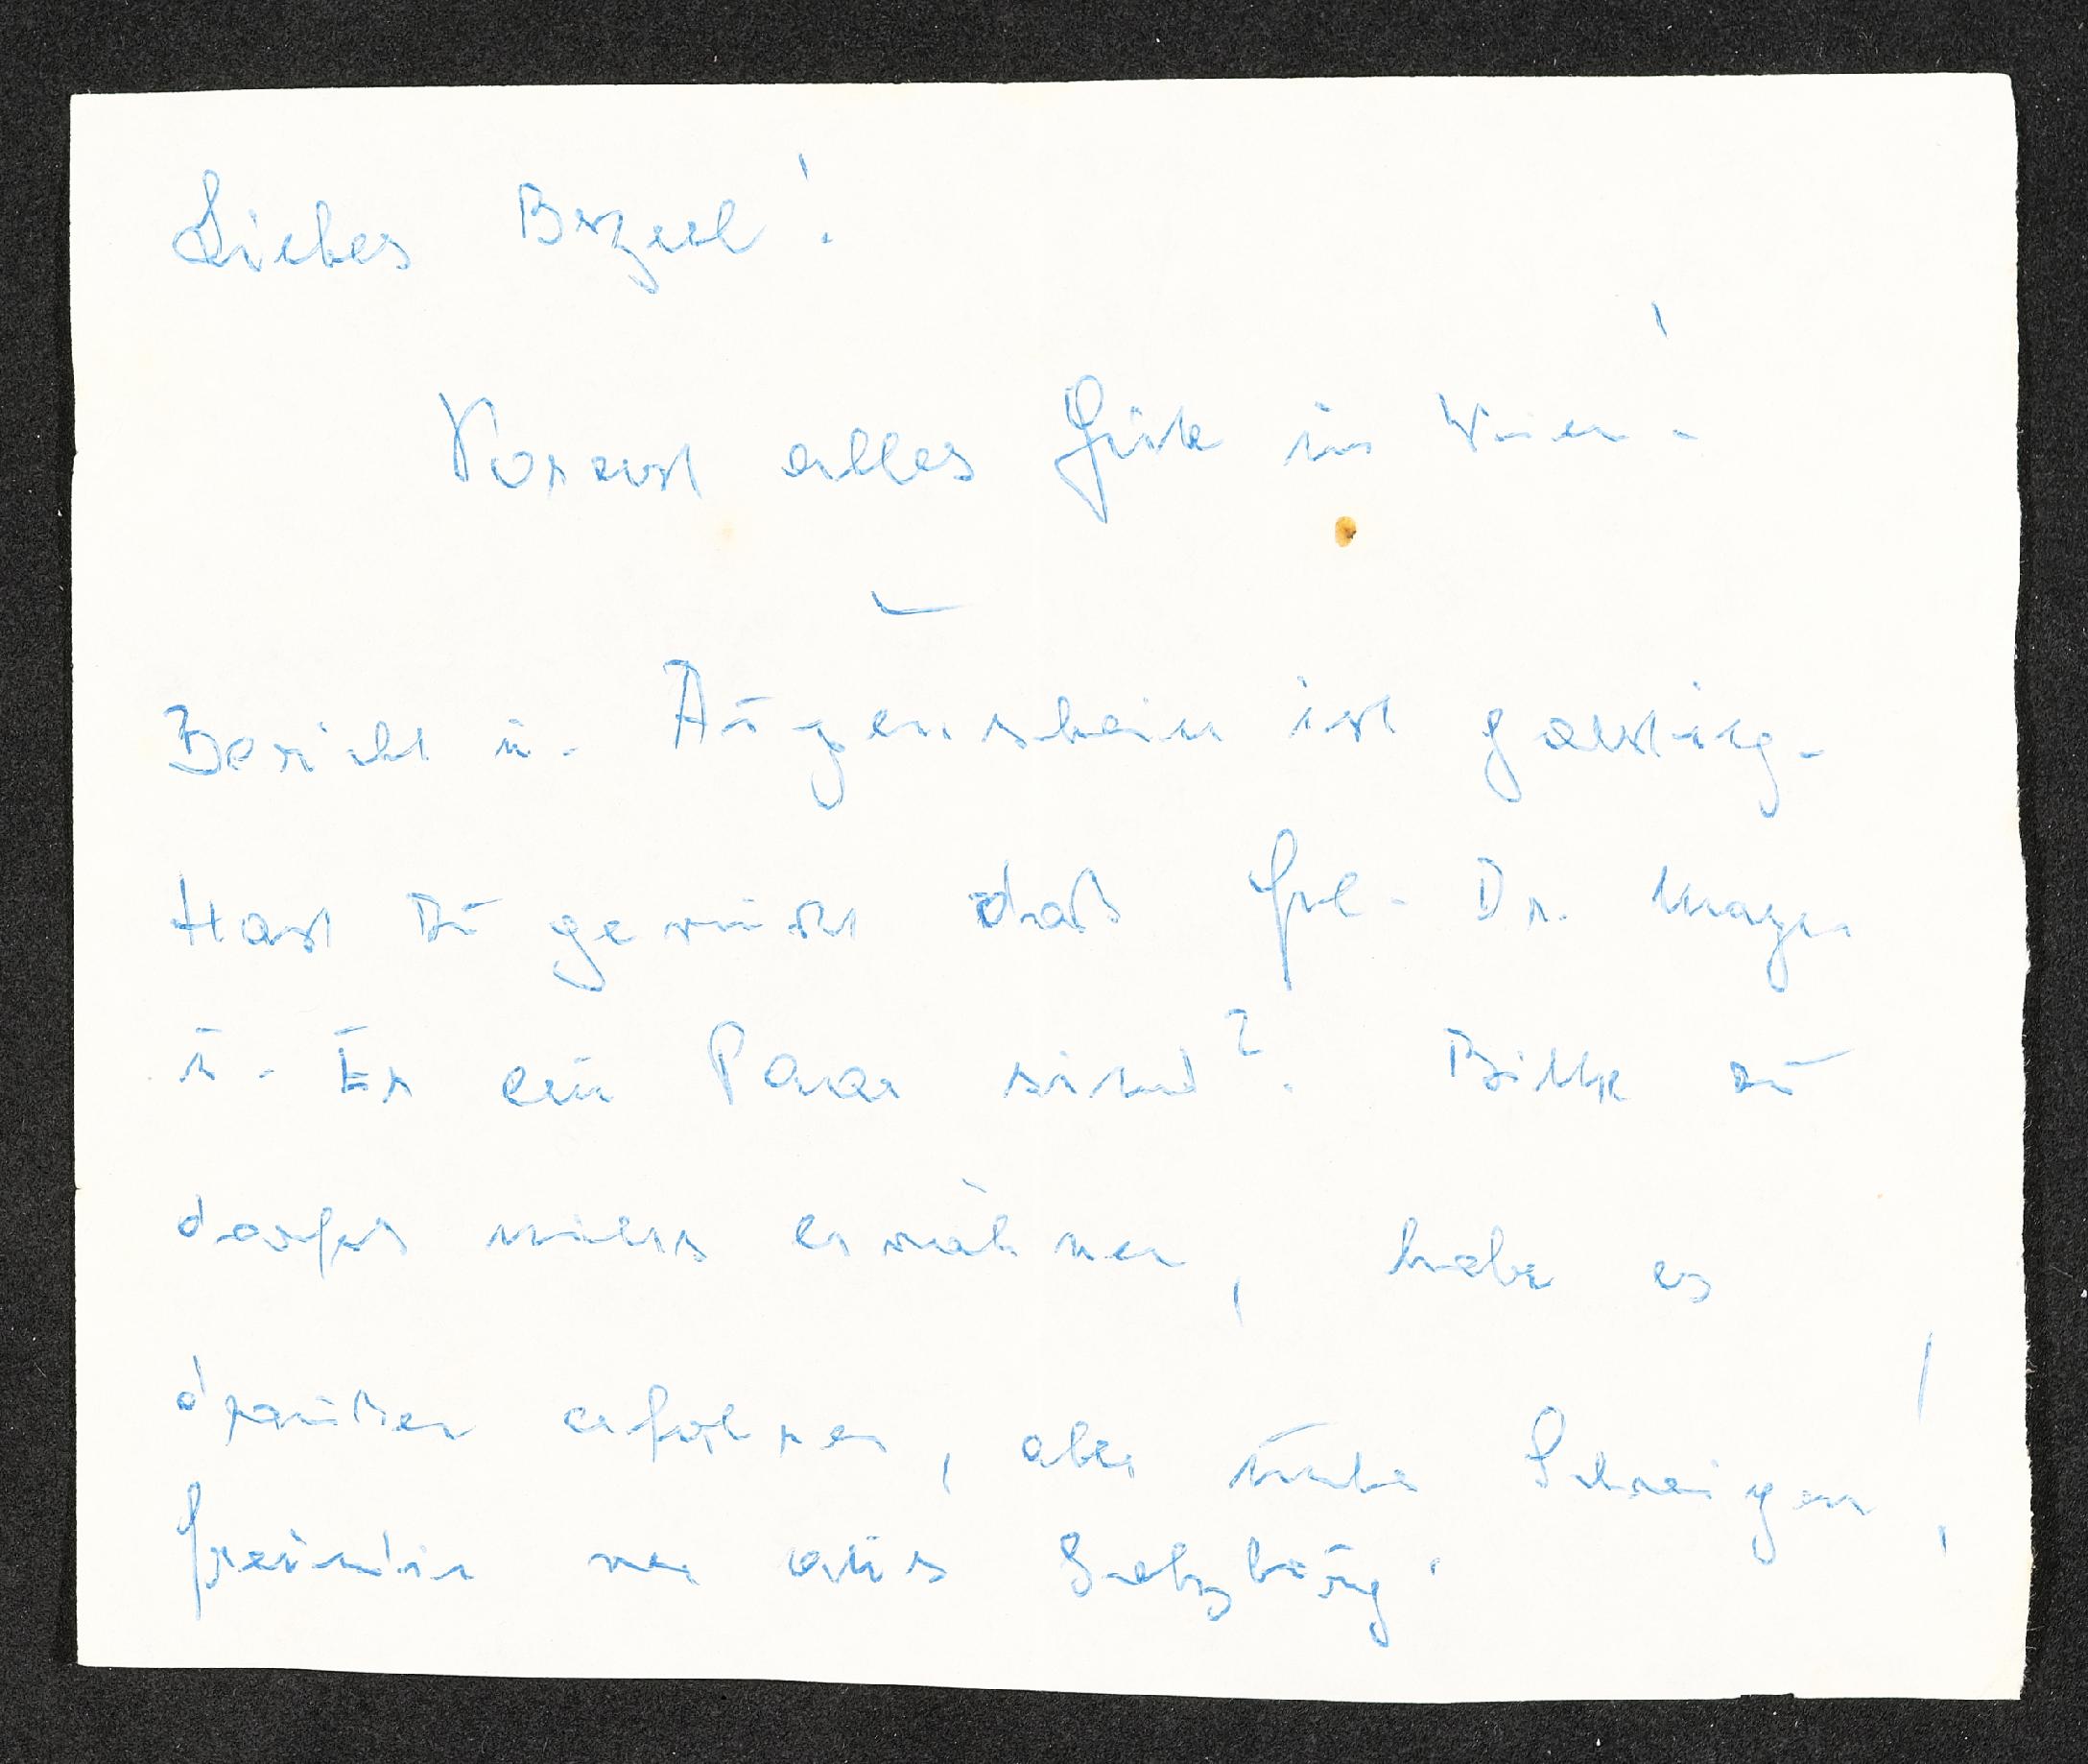 Liebes Burgerl!
Vorerst alles Gute in Wien!
Bericht u. Augenschein ist garstig.
Hast Du gewußt daß Frl. Dr. Mayer
u. Er ein Paar sind? Bitte Du
darfst nichts erwähnen, habe es
draußen erfahren, aber Schweigen!
freuen aus Salzburg.